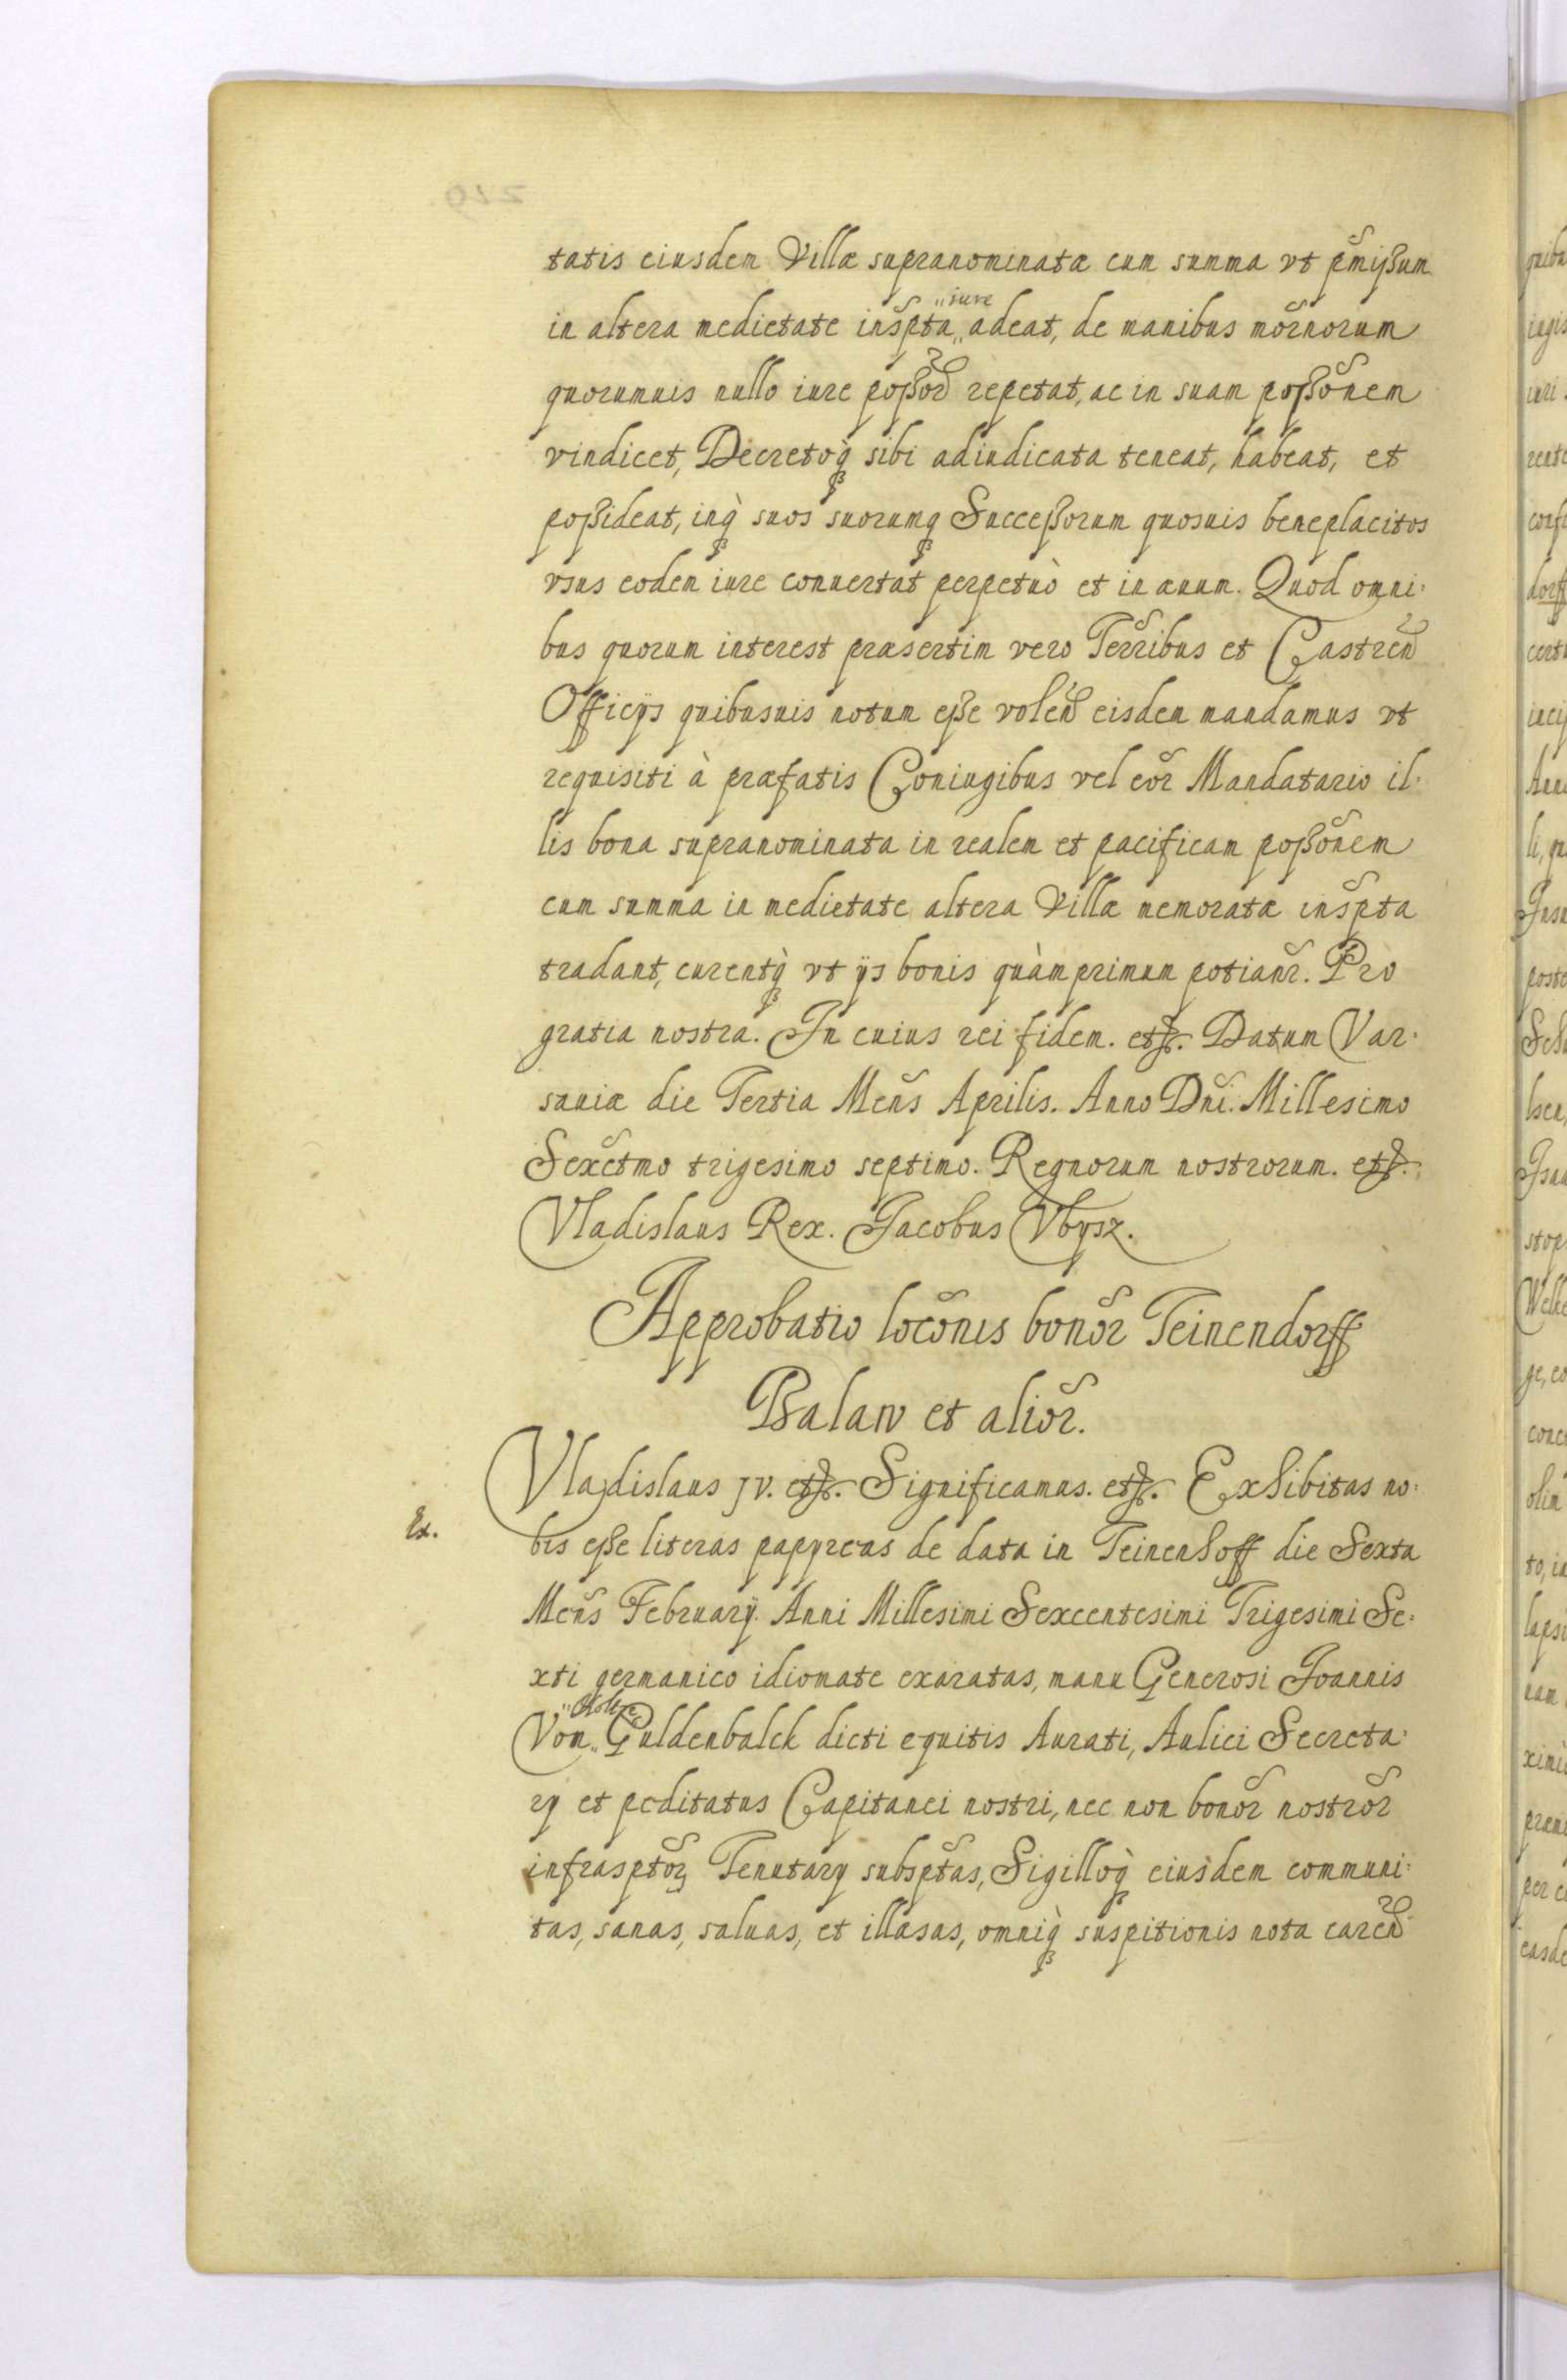 tatis eiusdem Villæ supranominatæ cum summa vt p̃mißum
in altera medietate insp̃ta „iure„ adeat, de manibus mõrnorum
quorumuis nullo iure poßoꝛ̃ repetat, ac in suam poßõnem
vindicet, Decretoq̀ʒ sibi adiudicata teneat, habeat, et
poßideat, inq̀ʒ suos suorumqʒ Succeßorum quosuis beneplacitos
vsus eodem iure conuertat perpetuò et in æuum. Quod omni:
bus quorum interest præsertim vero Ter̃ribus et Castreñ
Officijs quibusuis notum eße voleñ eisdem mandamus vt
requisiti à præfatis Coniugibus vel eor̃ Mandatario il:
lis bona supranominata in realem et pacificam poßõnem
cum summa in medietate altera Villæ memoratæ insp̃ta
tradant, curentq̀ʒ vt ijs bonis quàmprimum potiañr. Pro
gratia nostra. In cuius rei fidem. etc. Datum Var:
sauiæ die Tertia Meñs Aprilis. Anno Dñi. Millesimo
Sexc̃tmo trigesimo septimo. Regnorum nostrorum. etc.
Vladislaus Rex. Jacobus Vbysz.
Approbatio locõnis bonor̃ Teinendorff
Balaw et alior̃.
Vladislaus JV. etc. Significamus. etc. Exhibitas no:
Ex.
bis eße literas papyreas de data in Teinenhoff die Sexta
Meñs Februarij. Anni Millesimi Sexcentesimi Trigesimi Se:
xti germanico idiomate exaratas, manu Generosi Joannis
Von „Holtze„ Guldenbalck dicti equitis Aurati, Aulici Secreta:
rij et peditatus Capitanei nostri, nec non bonor̃ nostror̃
infrasp̃torʒ Tenutarij subsp̃tas, Sigilloq̀ʒ eiusdem communi:
tas, sanas, saluas, et illæsas, omniq̀ʒ suspitionis nota careñ